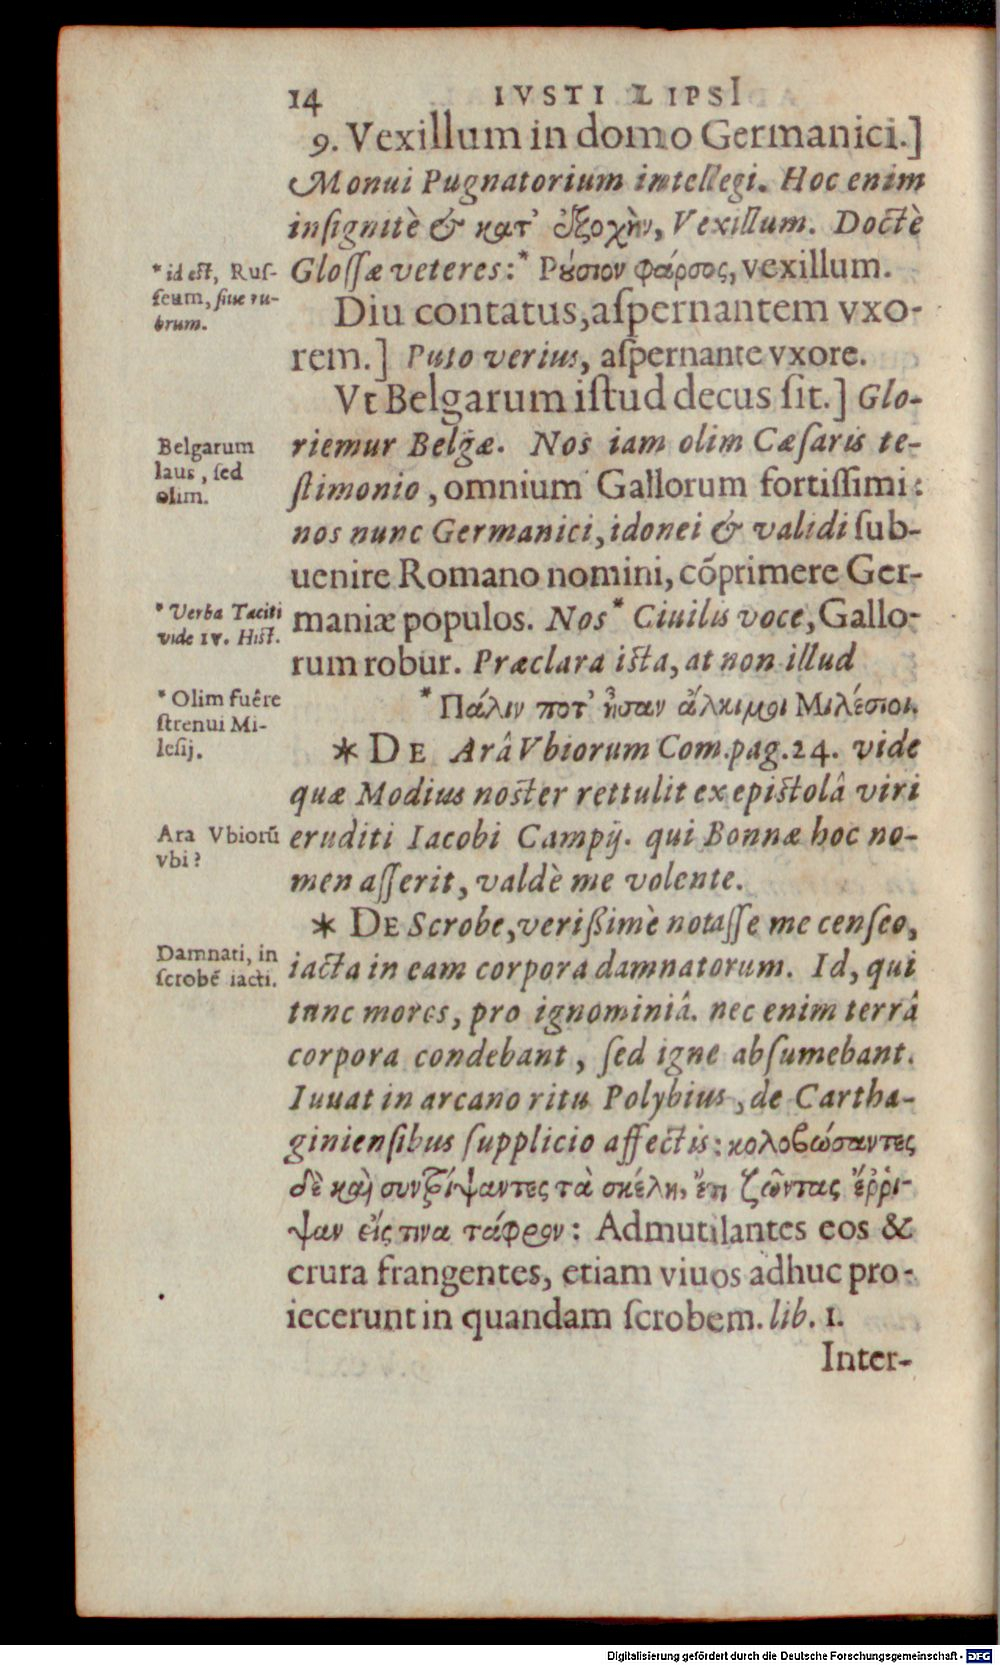 14 IVSTI LIPSI
9. Vexillum in domo Germanici.]
Monui Pugnatorium intellegi. Hoc enim
insignitè & κατ' ἐξοχὴν, Vexillum. Doctè
* id est, Rus-
seum, siue ru-
brum.
Glossæ veteres:* Ρούσιον φάρσος, vexillum.
Diu contatus, aspernantem vxo-
rem.] Puto verius, aspernante vxore.
Vt Belgarum istud decus sit.] Glo-
Belgarum
laus, sed
olim.
riemur Belgæ. Nos iam olim Cæsaris te-
stimonio, omnium Gallorum fortissimi:
nos nunc Germanici, idonei & validi sub-
uenire Romano nomini, cõprimere Ger-
* Verba Taciti
vide IV. Hist.
maniæ populos. Nos* Ciuilis voce, Gallo-
rum robur. Præclara ista, at non illud
* Olim fuêre
strenui Mi-
lesij.
* Πάλιν ποτ' ἦσαν ἄλκιμοι Μιλέσιοι.
* DE Arâ Vbiorum Com. pag. 24. vide
quæ Modius noster rettulit ex epistolâ viri
Ara Vbiorũ
vbi?
eruditi Iacobi Campij. qui Bonnæ hoc no-
men asserit, valdè me volente.
* DE Scrobe, verissimè notasse me censeo,
Damnati, in
scrobẽ iacti.
iacta in eam corpora damnatorum. Id, qui
tunc mores, pro ignominiâ. nec enim terrâ
corpora condebant, sed igne absumebant.
Iuuat in arcano ritu Polybius, de Cartha-
giniensibus supplicio affectis: κολοβώσαντες
δὲ καὶ συντρίψαντες τὰ σκέλη, ἔτι ζῶντας ἔῤῥι-
ψαν εἴς τινα τάφρον: Admutilantes eos &
crura frangentes, etiam viuos adhuc pro-
iecerunt in quandam scrobem. lib. I.
Inter-
Digitalisierung gefördert durch die Deutsche Forschungsgemeinschaft - DFG